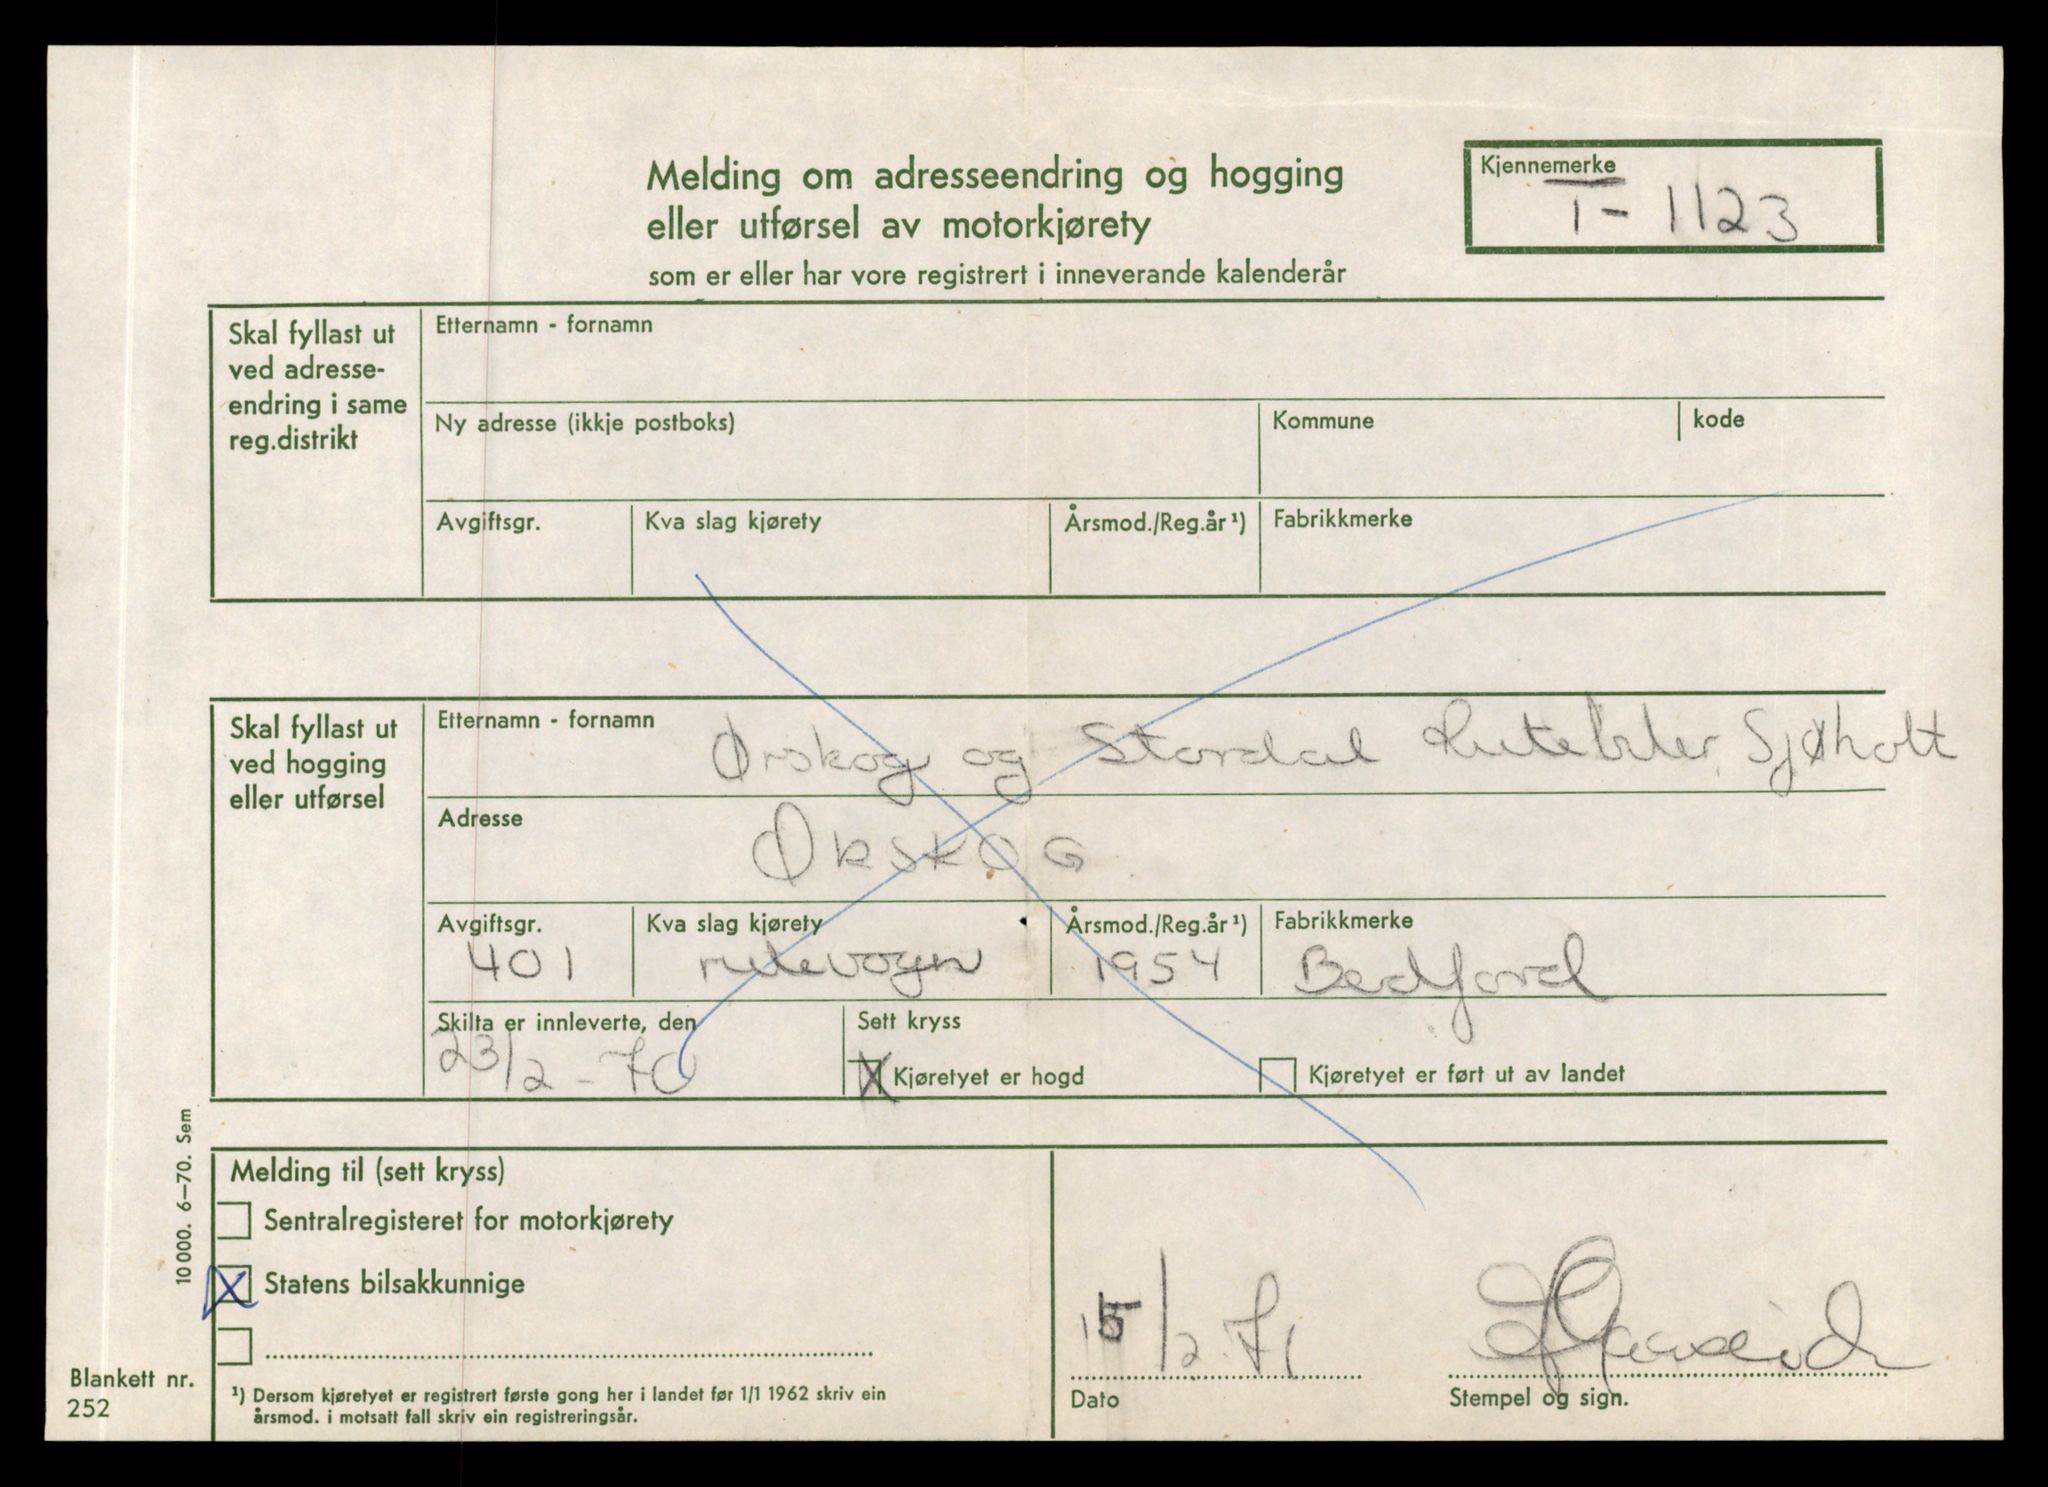 Melding om adresseendring og hogging
eller utførsel av motorkjørety
som er eller har vore registrert i inneverande kalenderår
Kjennemerke
T-1123
Skal fyllast ut
ved adresse-
endring i same
reg.distrikt
Etternamn - fornamn
Ny adresse (ikkje postboks)
Kommune
kode
Avgiftsgr.
Kva slag kjørety
Årsmod./Reg.år ¹)
Fabrikkmerke
Skal fyllast ut
ved hogging
eller utførsel
Etternamn - fornamn
Ørskog og Stordal Rutebiler, Sjøholt
Adresse
ØRSKOG
Avgiftsgr.
401
Kva slag kjørety
rutevogn
Årsmod./Reg.år ¹)
1954
Fabrikkmerke
Bedford
Skilta er innleverte, den
23/2-70
Sett kryss
X Kjøretyet er hogd
Kjøretyet er ført ut av landet
Melding til (sett kryss)
Sentralregisteret for motorkjørety
X Statens bilsakkunnige
10 000. 6-70. Sem
Blankett nr.
252
¹) Dersom kjøretyet er registrert første gong her i landet før 1/1 1962 skriv ein
årsmod. i motsatt fall skriv ein registreringsår.
15/2-71
Dato
Stempel og sign.